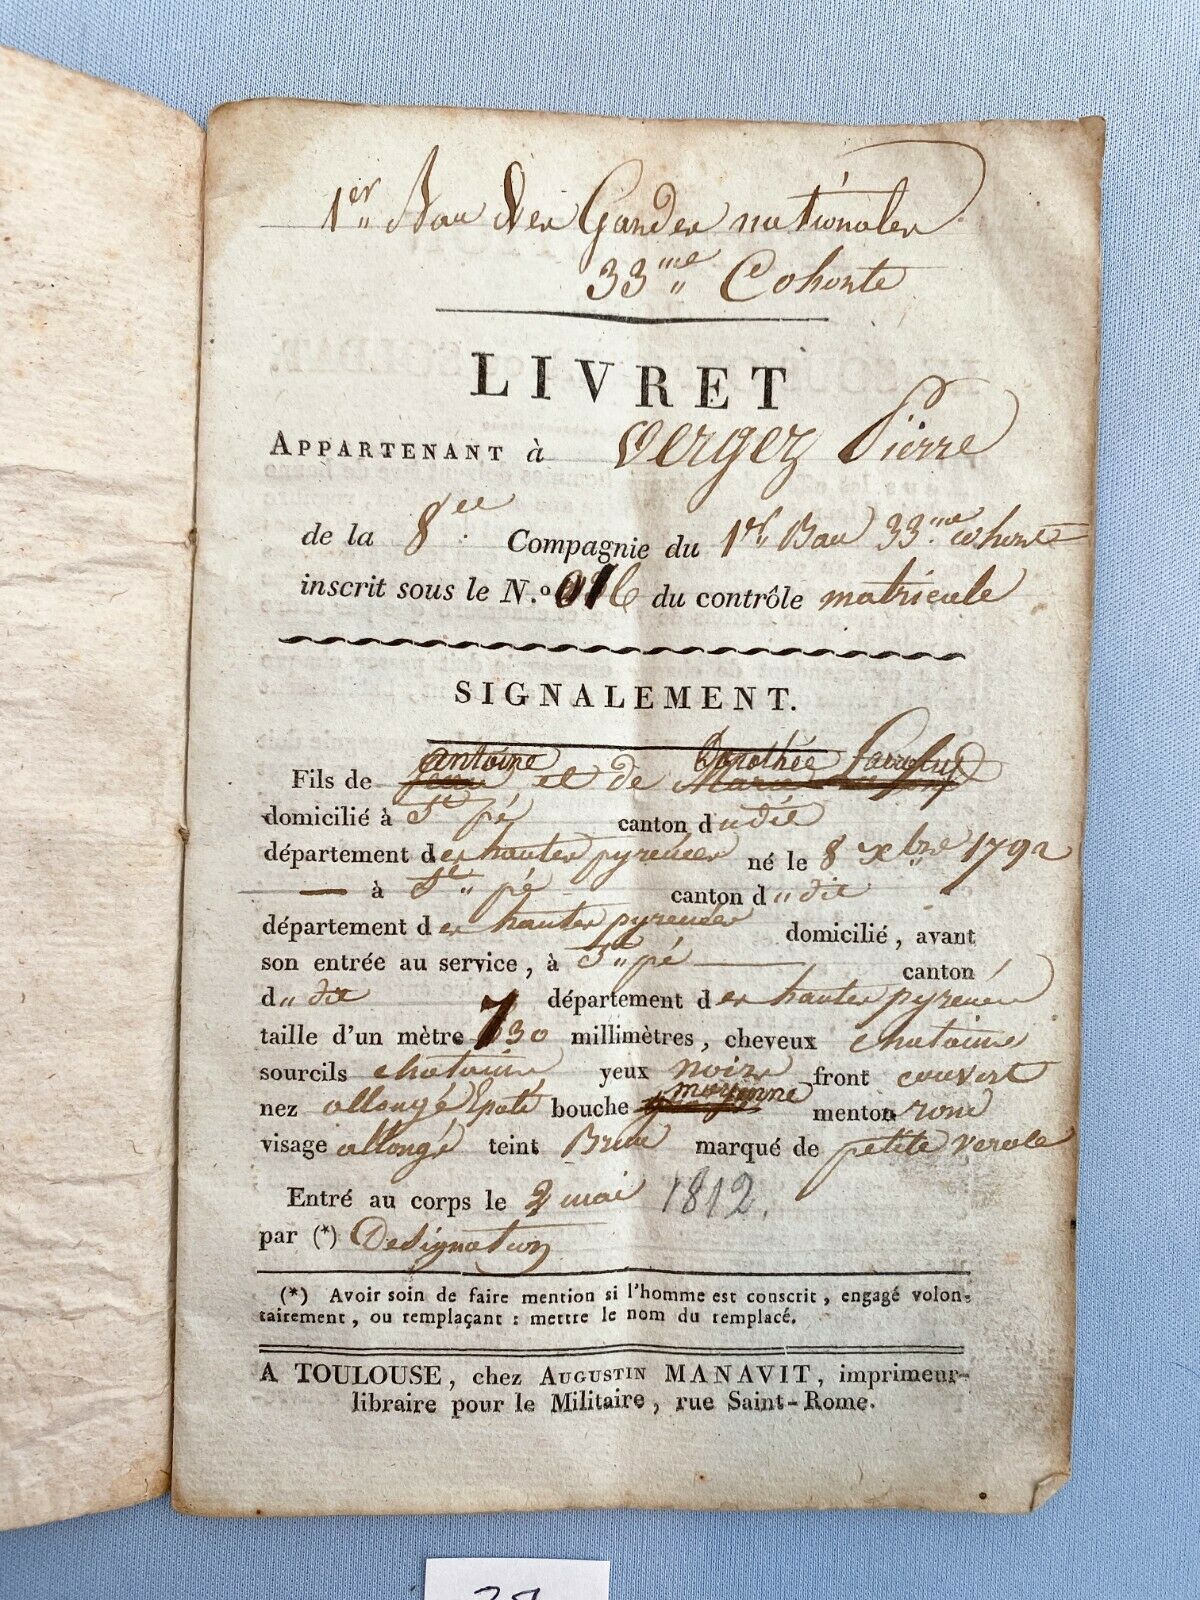 1er Ban des Gardes nationales
33me Cohorte
LIVRET
APPARTENANT à Vergez Pierre
de la 8ee Compagnie du 1er Ban 33me Cohorte
inscrit sous le N.º du contrôle matricule
SIGNALEMENT.
antoine Dorothée
Fils de et de Marie
domicilié à St pé canton dudit
département des hautes pyrenées né le 8 xbre 1792
à St pé canton dudit
département des hautes pyrenées domicilié, avant
son entrée au service, à St pé canton
dudit département des hautes pyrénées
taille d'un mètre 730 millimètres, cheveux chataine
sourcils chataine yeux noirs front couvert
moyenne
nez allongé Epaté bouche menton rond
visage allongé teint Brun marqué de petite verole
Entré au corps le 2 mai 1812.
par (*) Designation
(*) Avoir soin de faire mention si l'homme est conscrit, engagé volon-
tairement, ou remplaçant : mettre le nom du remplacé.
A TOULOUSE, chez AUGUSTIN MANAVIT, imprimeur-
libraire pour le Militaire, rue Saint-Rome.